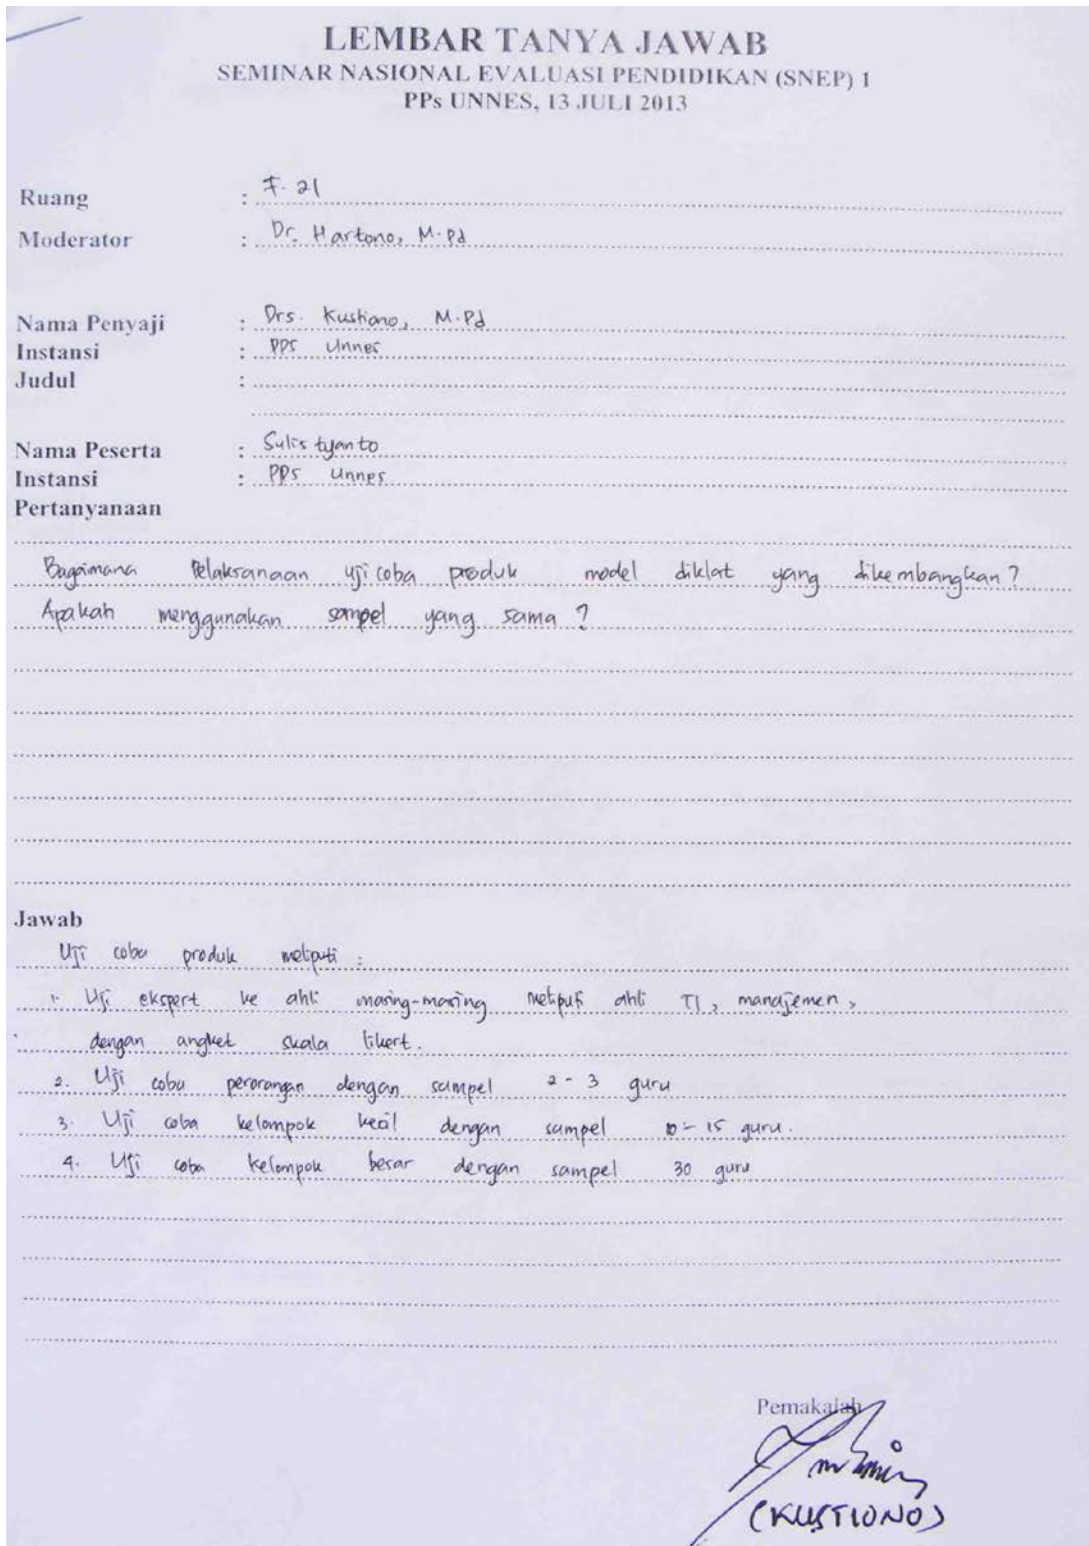 LEMBAR TANYA JAWAB
SEMINAR NASIONAL EVALUASI PENDIDIKAN (SNEP) 1
PPs UNNES, 13 JULI 2013
Ruang : F. 21
Moderator : Dr. Hartono, M.Pd
Nama Penyaji : Drs. Kustiono, M.Pd
Instansi : PPS Unnes
Judul :
Nama Peserta : Sulistyanto
Instansi : PPS Unnes
Pertanyanaan
Bagaimana Pelaksanaan uji coba produk model diklat yang dikembangkan?
Apakah menggunakan sampel yang sama ?
Jawab
Uji coba produk meliputi :
1. Uji ekspert ke ahli masing-masing meliputi ahli TI, manajemen,
dengan angket skala likert.
2. Uji coba perorangan dengan sampel 2 - 3 guru
3. Uji coba kelompok kecil dengan sampel 10 - 15 guru.
4. Uji coba kelompok besar dengan sampel 30 guru
Pemakalah
(KUSTIONO)